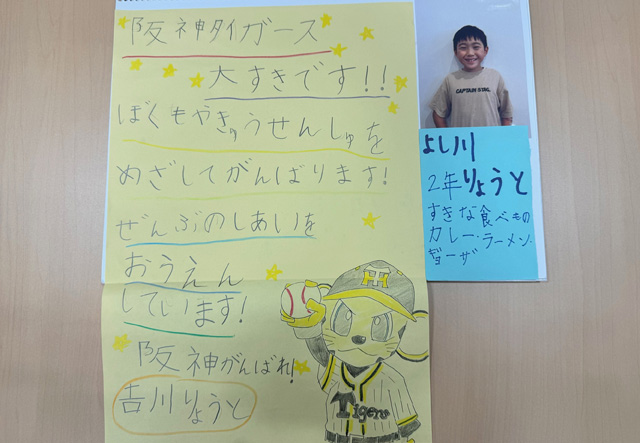 阪神タイガース
大すきです!!
ぼくもやきゅうせんしゅを
めざしてがんばります!
ぜんぶのしあいを
おうえん
しています!
阪神がんばれ!
吉川りょうと
HT
Tigers
CAPTAIN STAG
よし川
2年りょうと
すきな食べもの
カレー・ラーメン・
ギョーザ